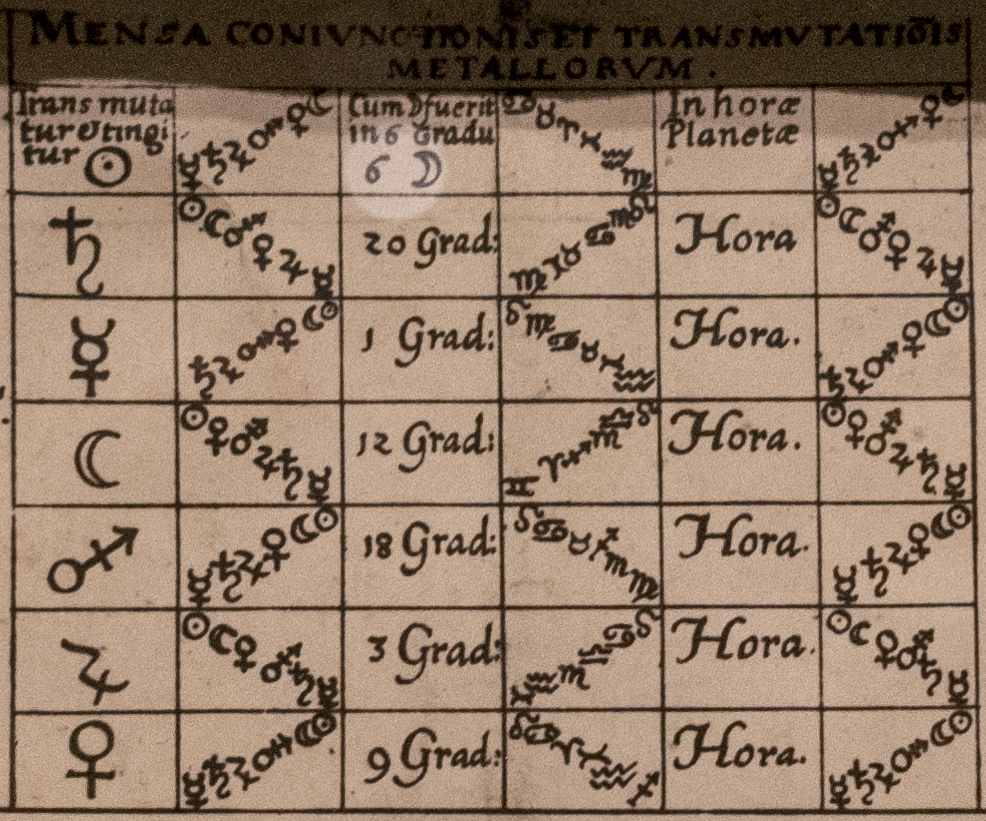 MENSA CONIVNCTIONIS ET TRANSMVTATIOIS
METALLORVM.
Transmuta
tur & tingi
tur ☉
☿ ♄ ♃ ♂ ♀ ☾
Cum ☽ fuerit
in 6 Gradu
6 ☽
♋ ♉ ♈ ♓ ♒ ♍
In horæ
Planetæ
☿ ♄ ♃ ♂ ♀ ☾
♄
☉ ☾ ♂ ♀ ♃ ☿
20 Grad:
♍ ♊ ♉ ♋ ♏ ♌
Hora
☉ ☾ ♂ ♀ ♃ ☿
☿
♄ ♃ ♂ ♀ ☾ ☉
1 Grad:
♌ ♍ ♋ ♉ ♓ ♒
Hora.
♄ ♃ ♂ ♀ ☾ ☉
☾
☉ ♀ ♂ ♃ ♄ ☿
12 Grad:
♊ ♈ ♐ ♏ ♎ ♌
Hora.
☉ ♀ ♂ ♃ ♄ ☿
♂
☿ ♄ ♃ ♀ ☾ ☉
18 Grad:
♌ ♋ ♉ ♐ ♏ ♍
Hora.
☿ ♄ ♃ ♀ ☾ ☉
♃
☉ ☾ ♀ ♂ ♄ ☿
3 Grad:
♓ ♒ ♏ ♎ ♋ ♌
Hora.
☉ ☾ ♀ ♂ ♄ ☿
♀
☿ ♄ ♃ ♂ ☾ ☉
9 Grad:
♌ ♋ ♈ ♓ ♒ ♐
Hora.
☿ ♄ ♃ ♂ ☾ ☉